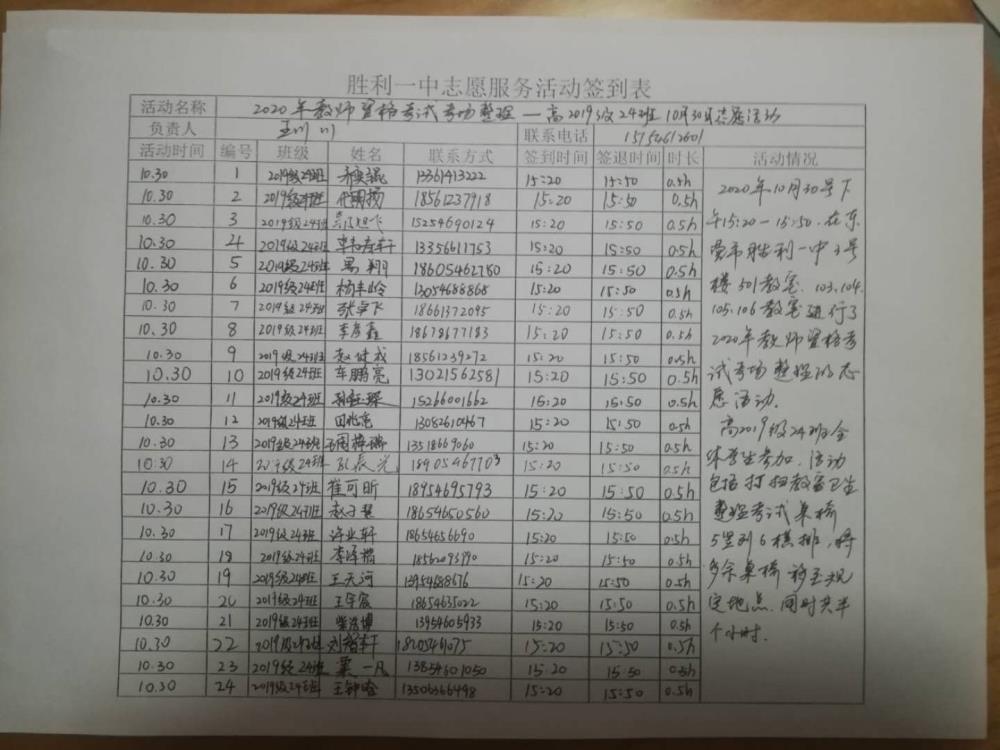 胜利一中志愿服务活动签到表
活动名称 2020年教师资格考试考场整理—高2019级24班10月30日志愿活动
负责人 联系电话
活动时间 编号 班级 姓名 联系方式 签到时间 签退时间 时长 活动情况
10.30 1 2019级24班 13361413222 15:20 15:50 0.5h
10.30 2 2019级24班 18561237918 15:20 15:50 0.5h
10.30 3 2019级24班 15254690124 15:20 15:50 0.5h
10.30 4 2019级24班 13356611753 15:20 15:50 0.5h
10.30 5 2019级24班 18605462780 15:20 15:50 0.5h
10.30 6 2019级24班 杨丰岭 13054688868 15:20 15:50 0.5h
10.30 7 2019级24班 张卓飞 18661372095 15:20 15:50 0.5h
10.30 8 2019级24班 李彦鑫 18678677183 15:20 15:50 0.5h
10.30 9 2019级24班 赵健成 18561239272 15:20 15:50 0.5h
10.30 10 2019级24班 车鹏亮 13021562581 15:20 15:50 0.5h
10.30 11 2019级24班 15266001662 15:20 15:50 0.5h
10.30 12 2019级24班 田兆亮 13082610467 15:20 15:50 0.5h
10.30 13 2019级24班 13518669060 15:20 15:50 0.5h
10.30 14 2019级24班 18905467703 15:20 15:50 0.5h
10.30 15 2019级24班 崔可昕 18954695793 15:20 15:50 0.5h
10.30 16 2019级24班 18654650560 15:20 15:50 0.5h
10.30 17 2019级24班 许业轩 18654656690 15:20 15:50 0.5h
10.30 18 2019级24班 李泽楷 18562093990 15:20 15:50 0.5h
10.30 19 2019级24班 王天河 13954688676 15:20 15:50 0.5h
10.30 20 2019级24班 王宇宸 18654635022 15:20 15:50 0.5h
10.30 21 2019级24班 柴浩博 13954605933 15:20 15:50 0.5h
10.30 22 2019级24班 18205461075 15:20 15:50 0.5h
10.30 23 2019级24班 栾一凡 13854601050 15:20 15:50 0.5h
10.30 24 2019级24班 13506366498 15:20 15:50 0.5h
2020年10月30号下
午15:20—15:50.在东
营市胜利一中2号
楼501教室.103.104.
105.106教室进行了
2020年教师资格考
试考场整理的志
愿活动.
高2019级24班全
体学生参加.活动
包括打扫教室卫生
整理考试桌椅
5竖列6横排,将
多余桌椅移至规
定地点.用时共半
个小时.